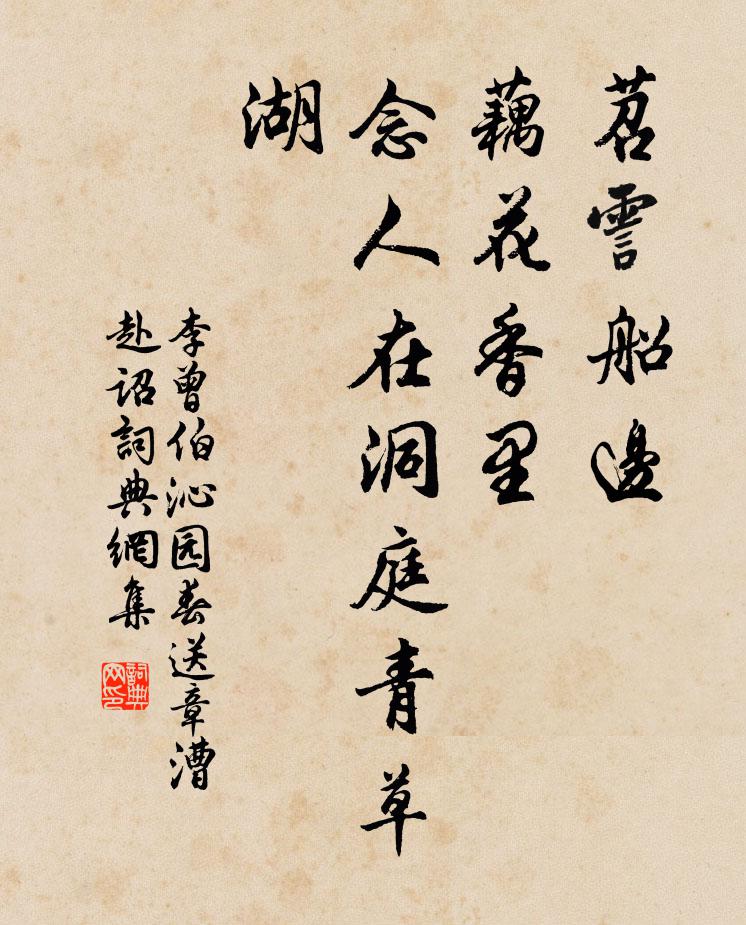 苕霅船邊
藕花香里
念人在洞庭青草
湖
李曾伯沁园春送章漕
赴詔詞典網集
詞典
网印